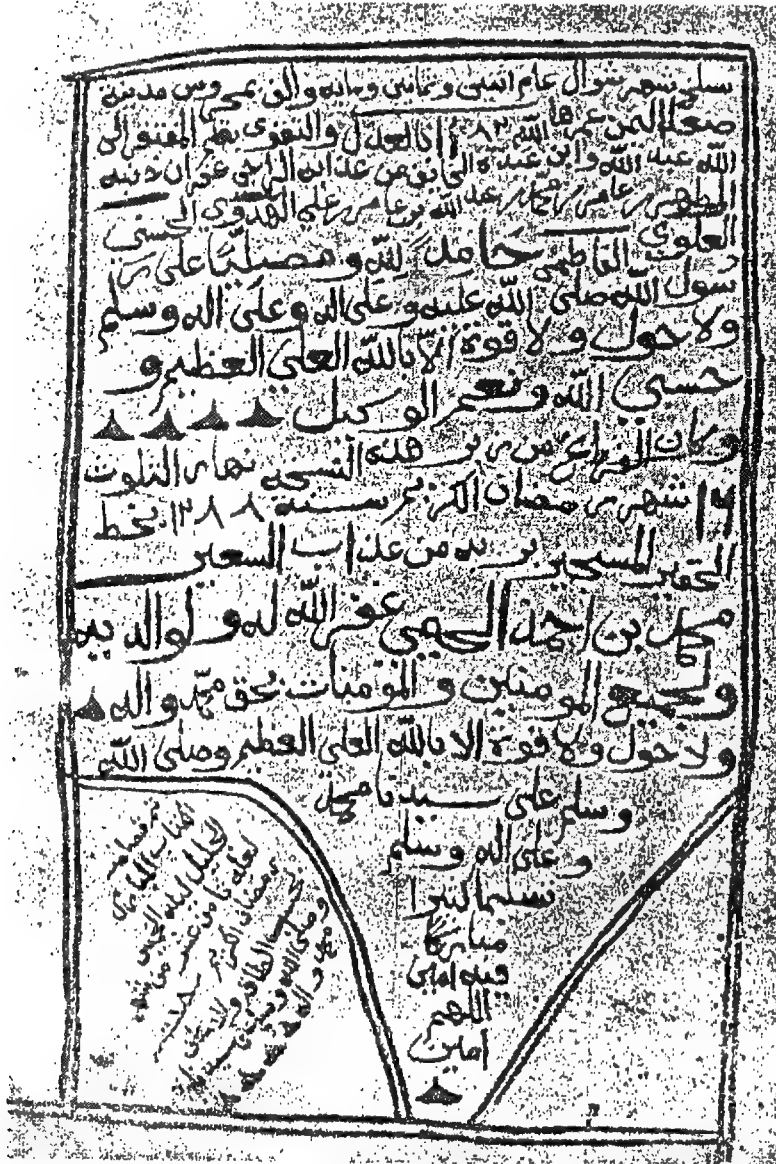 سلخ شهر شوال عام اثنين وثمانين ومائه والف بمحروس مدينة
صنعا اليمن عمرها الله ٨٢ ١١ بالعدل والتقوى بقلم المفتقر الى
الله عبد الله وابن عبده من عذابه الراجي غفران ذنبه
المطهر بن عامر بن محمد بن عبد الله بن عامر بن علي الهدوي الحسني
العلوي الفاطمي حامدا لله ومصليا على ر
سول الله صلى الله عليه وعلى اله وعلى اله وسلم
ولا حول ولا قوة الا بالله العلي العظيم و
حسبي الله ونعم الوكيل
وكان الفراغ من زبر هذه النسخة نهار الثلوث
١٦ شهر رمضان الكريم سنة ١٢٨٨ بخط
الحقير المستجير بربه من عذاب السعير
محمد بن احمد الحيمي غفر الله له ولوالديه
ولجميع المومنين والمومنات بحق محمد واله
ولا حول ولا قوة الا بالله العلي العظيم وصلى الله
وسلم على سيدنا محمد
وعلى اله وسلم
تسليما كثيرا
مباركا
فيه امين
اللهم
امين
تم قصاصه
الكتاب المبارك
الجليل ليله الخميس
لعله ثامن عشر من شهر
رمضان الكريم
وصلى الله وسلم على سيدنا
محمد واله